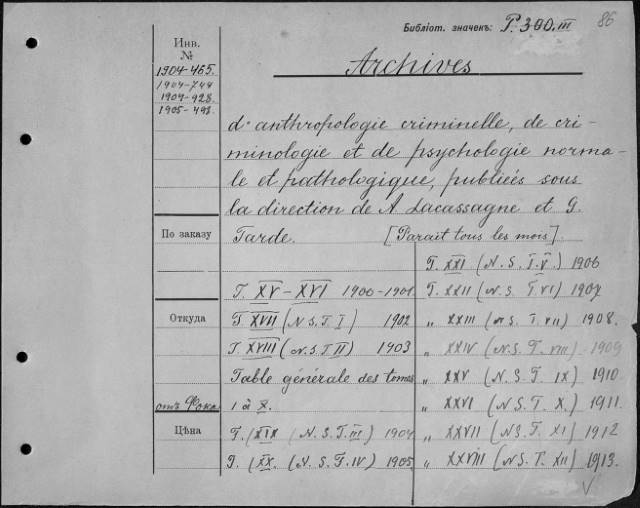 86
Библіот. значекъ: P. 300.III
Инв.
№
1904-465.
1904-744
1904-928.
1905-498.
Archives
d'anthropologie criminelle, de cri-
minologie et de psychologie norma-
le et pathologique, publiées sous
la direction de A. Lacassagne et G.
Tarde. [Parait tous les mois].
По заказу
Откуда
отъ Фока
Цѣна
T. XV-XVI 1900-1901
T. XVII (N. S. T. I) 1902
T. XVIII (N. S. T. II) 1903
Table générale des tomes
1 à X.
T. (XIX (N. S. T. III) 1904
T. (XX. (N. S. T. IV) 1905
T. XXI (N. S. T. V.) 1906
T. XXII (N. S. T. VI) 1907
„ XXIII (N. S. T. VII) 1908.
„ XXIV (N. S. T. VIII) 1909
„ XXV (N. S. T. IX) 1910
„ XXVI (N. S. T. X.) 1911.
„ XXVII (N. S. T. XI) 1912
„ XXVIII (N. S. T. XII) 1913.
V